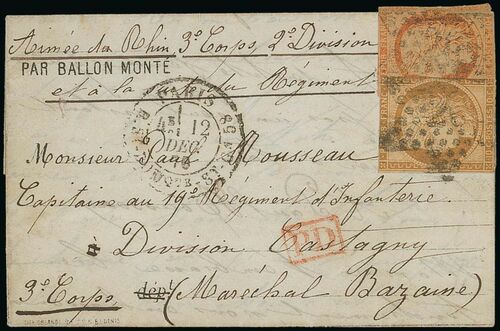 Armée du Rhin, 3e Corps, 2e Division
PAR BALLON MONTÉ
et à la suite du Régiment
PARIS
12
DEC.
Monsieur Paul Mousseau
Capitaine au 19e Régiment d'Infanterie
à Division Castagny
PD
3e Corps dépt (Maréchal Bazaine)